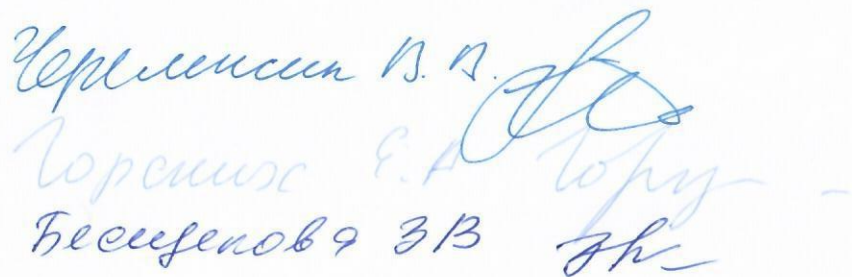 Черемисин В. В.
Горских Е.А
Бесщекова ЗВ